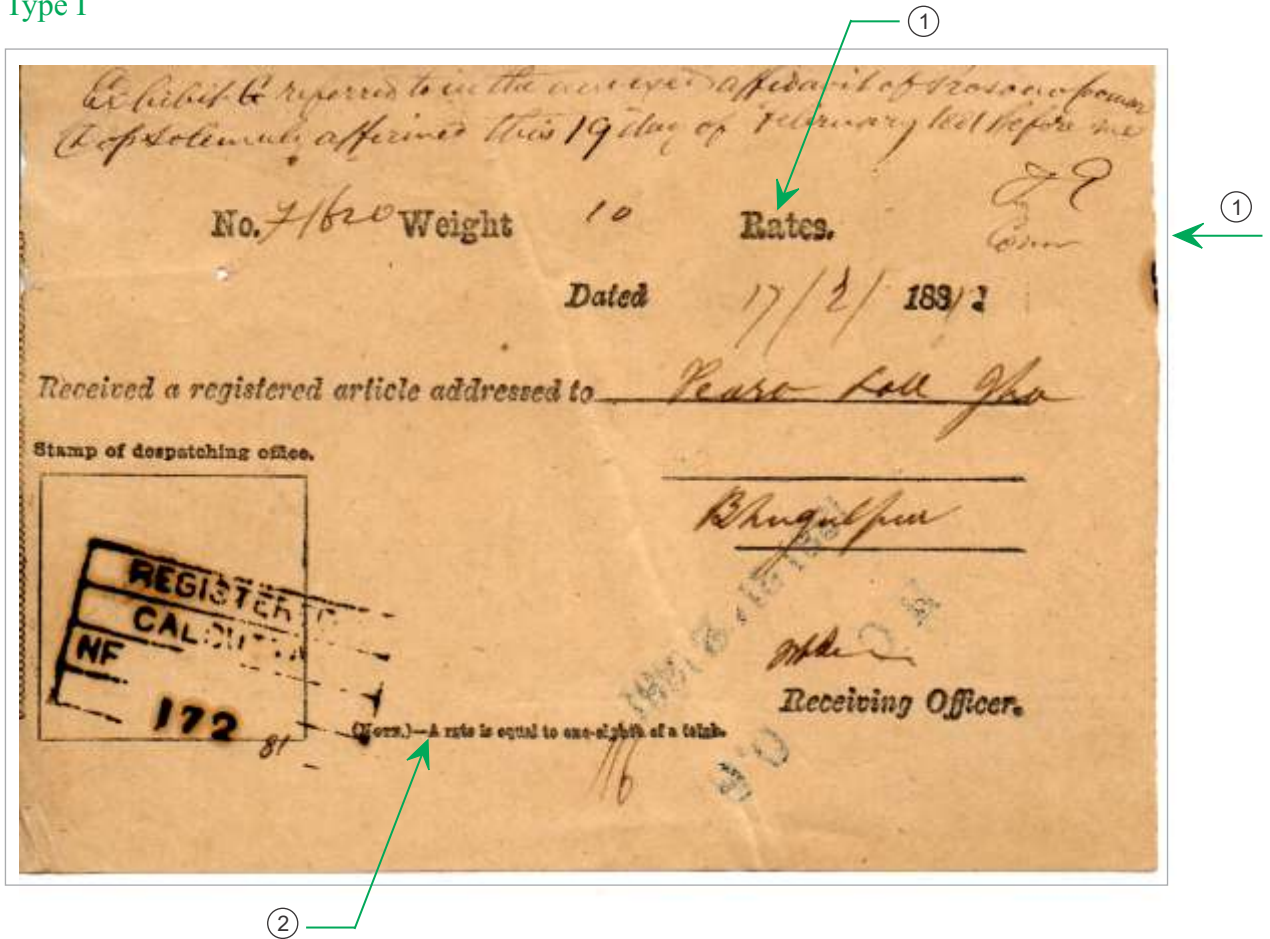 Type I
①
Exhibit G referred to in the annexed affidavit of
solemnly affirmed this 19 day of February before me
No. 7/620 Weight 10 Rates.
①
Dated 17/2/ 188
Received a registered article addressed to Pearo Lall Gho
Stamp of despatching office.
Bhugulpur
REGISTERED
CALCUTTA
NF
172
81
Receiving Officer.
(NOTE.)—A rate is equal to one-eighth of a tolah.
②